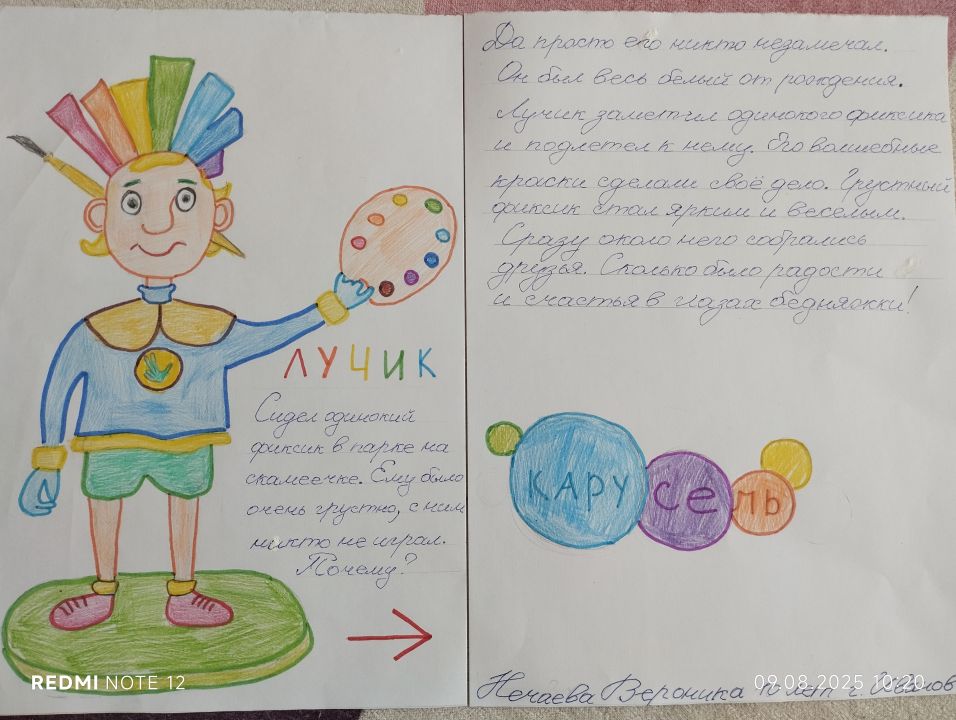 ЛУЧИК
Сидел одинокий
фиксик в парке на
скамеечке. Ему было
очень грустно, с ним
никто не играл.
Почему?
Да просто его никто незамечал.
Он был весь белый от рождения.
Лучик заметил одинокого фиксика
и подлетел к нему. Его волшебные
краски сделали своё дело. Грустный
фиксик стал ярким и веселым.
Сразу около него собрались
друзья. Сколько было радости
и счастья в глазах бедняжки!
КАРУСЕЛЬ
Нечаева Вероника лет г.
REDMI NOTE 12
09.08.2025 10:20